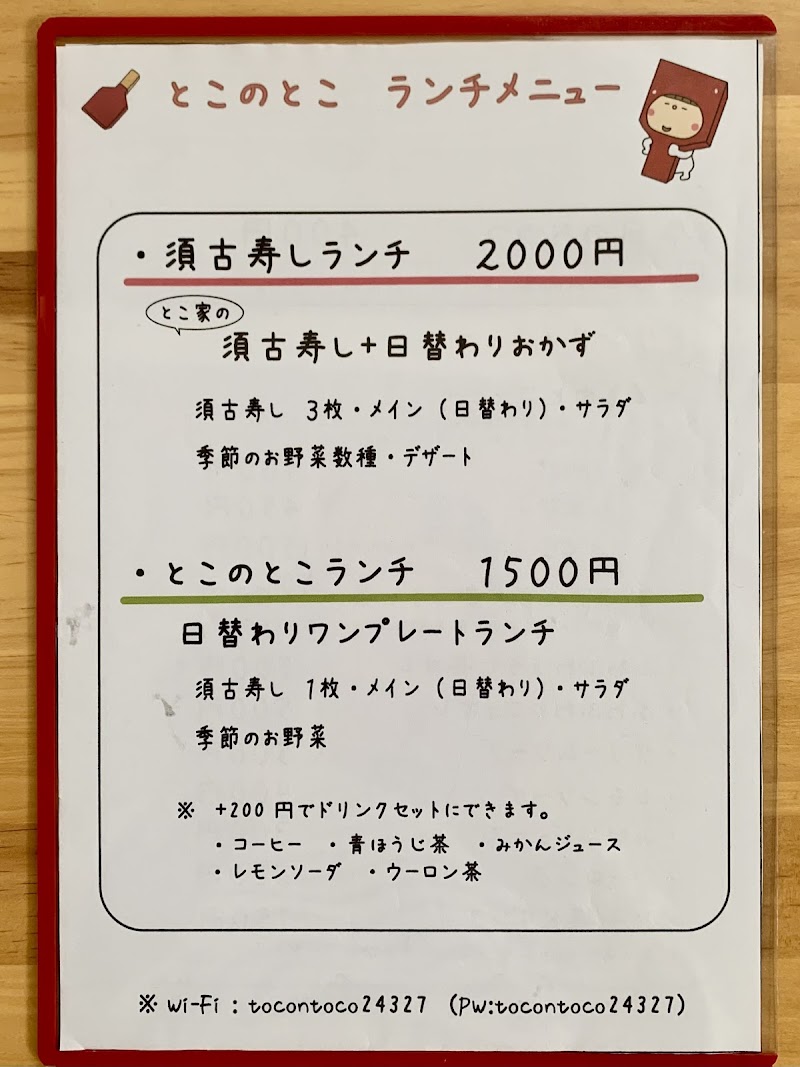 とこのとこ ランチメニュー
・須古寿しランチ 2000円
とこ家の
須古寿し+日替わりおかず
須古寿し 3枚・メイン(日替わり)・サラダ
季節のお野菜数種・デザート
・とこのとこランチ 1500円
日替わりワンプレートランチ
須古寿し 1枚・メイン(日替わり)・サラダ
季節のお野菜
※ +200円でドリンクセットにできます。
・コーヒー ・青ほうじ茶 ・みかんジュース
・レモンソーダ ・ウーロン茶
※ Wi-Fi : tocontoco24327 (PW:tocontoco24327)